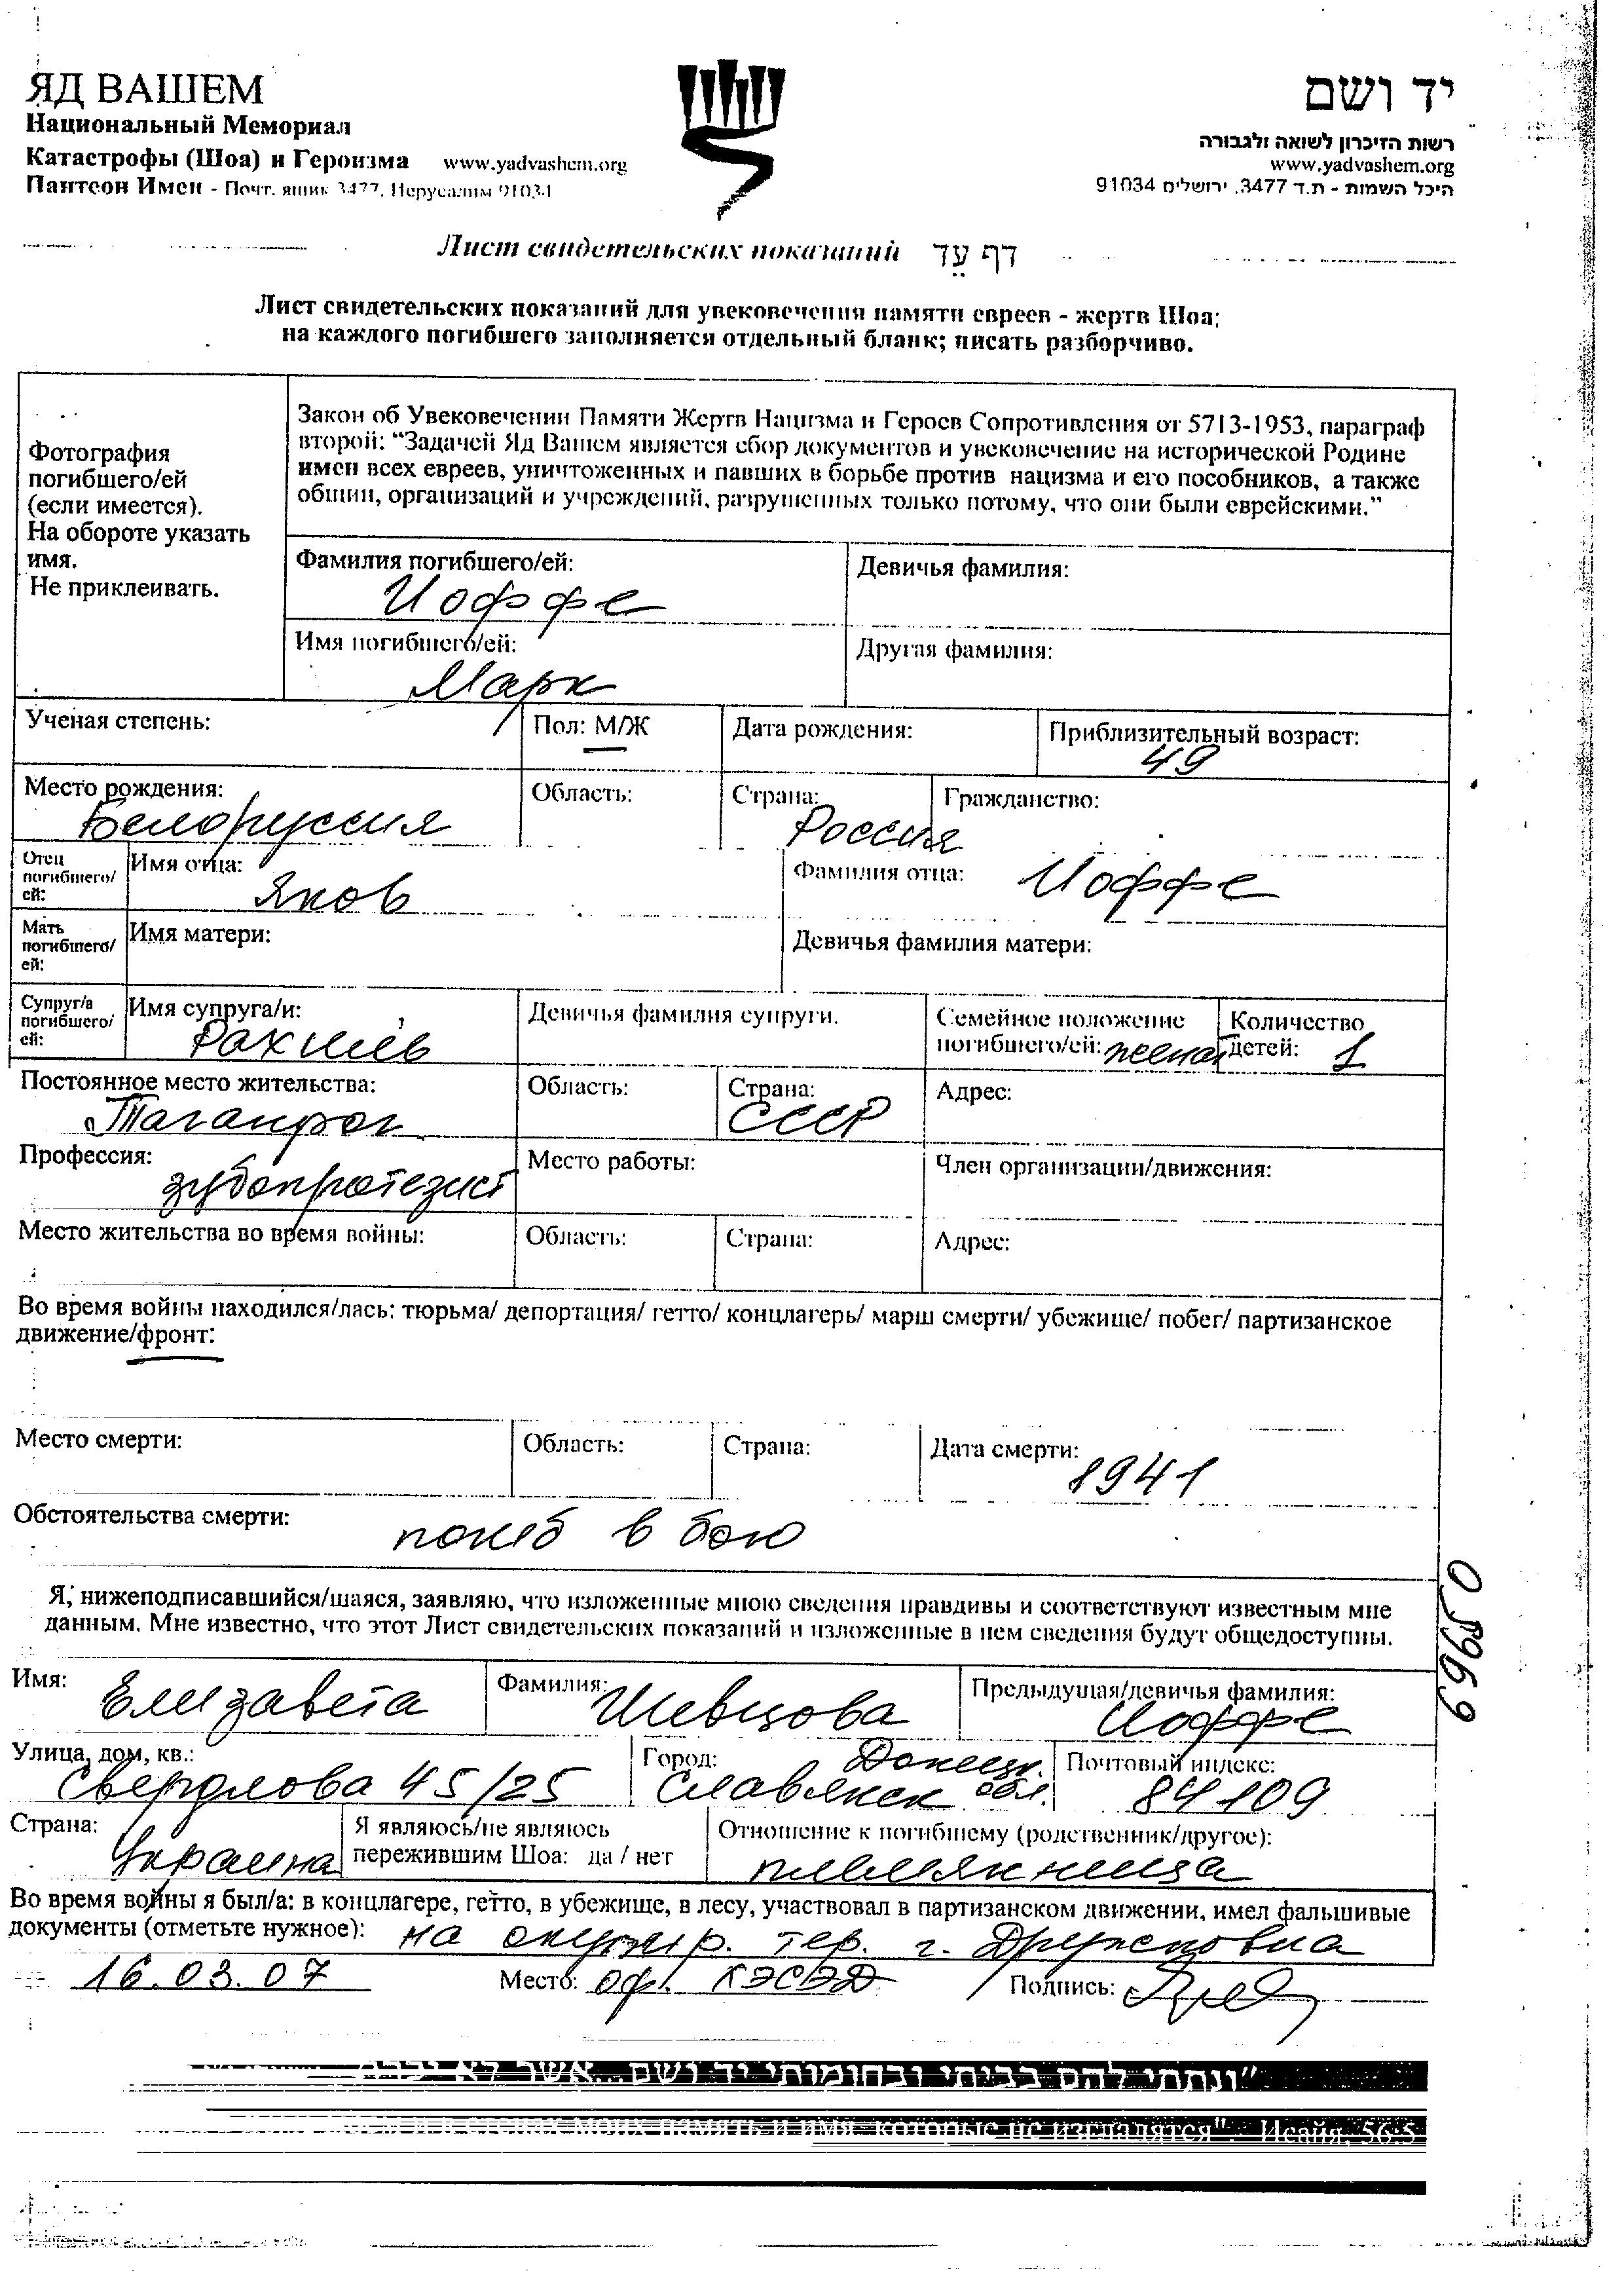 ЯД ВАШЕМ
Национальный Мемориал
Катастрофы (Шоа) и Героизма www.yadvashem.org
Пантеон Имен - Почт. ящик 3477, Иерусалим 91034
יד ושם
רשות הזיכרון לשואה ולגבורה
www.yadvashem.org
היכל השמות - ת.ד 3477, ירושלים 91034
Лист свидетельских показаний דף עֵד
Лист свидетельских показаний для увековечения памяти евреев - жертв Шоа;
на каждого погибшего заполняется отдельный бланк; писать разборчиво.
Фотография
погибшего/ей
(если имеется).
На обороте указать
имя.
Не приклеивать.
Закон об Увековечении Памяти Жертв Нацизма и Героев Сопротивления от 5713-1953, параграф
второй: “Задачей Яд Вашем является сбор документов и увековечение на исторической Родине
имен всех евреев, уничтоженных и павших в борьбе против нацизма и его пособников, а также
общин, организаций и учреждений, разрушенных только потому, что они были еврейскими.”
Фамилия погибшего/ей: Девичья фамилия:
Иоффе
Имя погибшего/ей: Другая фамилия:
Марк
Ученая степень: Пол: М/Ж Дата рождения: Приблизительный возраст:
49
Место рождения: Область: Страна: Гражданство:
Белоруссия Россия
Отец погибшего/ей: Имя отца: Яков Фамилия отца: Иоффе
Мать погибшего/ей: Имя матери: Девичья фамилия матери:
Супруг/а погибшего/ей: Имя супруга/и: Рахиль Девичья фамилия супруги. Семейное положение погибшего/ей: женат Количество детей: 1
Постоянное место жительства: Область: Страна: Адрес:
Таганрог СССР
Профессия: Место работы: Член организации/движения:
зубопротезист
Место жительства во время войны: Область: Страна: Адрес:
Во время войны находился/лась: тюрьма/ депортация/ гетто/ концлагерь/ марш смерти/ убежище/ побег/ партизанское
движение/фронт:
Место смерти: Область: Страна: Дата смерти:
1941
Обстоятельства смерти: погиб в бою
Я, нижеподписавшийся/шаяся, заявляю, что изложенные мною сведения правдивы и соответствуют известным мне
данным. Мне известно, что этот Лист свидетельских показаний и изложенные в нем сведения будут общедоступны.
Имя: Елизавета Фамилия: Шевцова Предыдущая/девичья фамилия: Иоффе
Улица, дом, кв.: Свердлова 45/25 Город: Славянск Донецк. обл. Почтовый индекс: 84109
Страна: Украина Я являюсь/не являюсь пережившим Шоа: да / нет Отношение к погибшему (родственник/другое): племянница
Во время войны я был/а: в концлагере, гетто, в убежище, в лесу, участвовал в партизанском движении, имел фальшивые
документы (отметьте нужное): на оккупир. тер. г. Дружковка
16.03.07 Место: оф. КЭСЭД Подпись:
05969
“ונתתי להם בביתי ובחומותי יד ושם...אשר לא יכרת
в стенах моих память и имя, которые не изгладятся". Исайя, 56:5